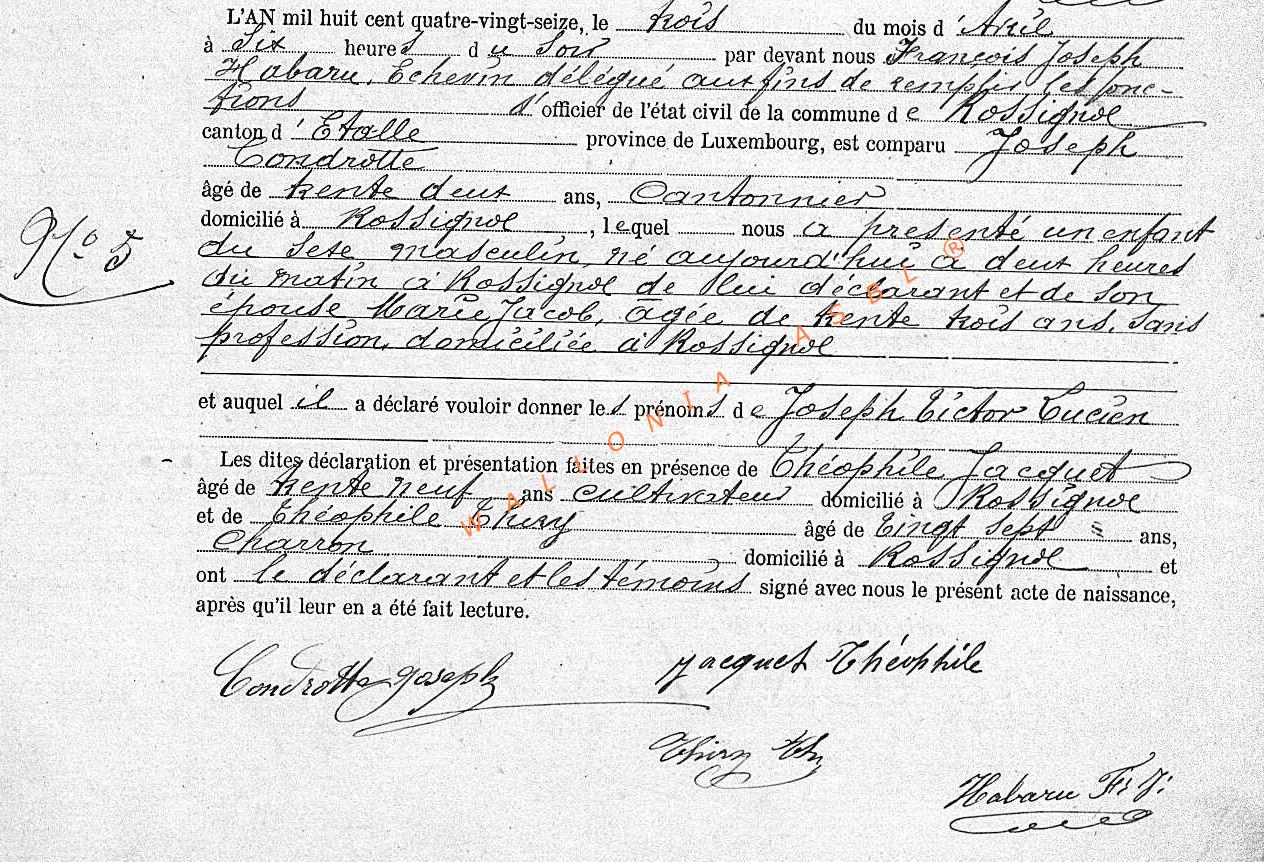 L'AN mil huit cent quatre-vingt-seize, le trois du mois d'Avril
à Six heures du Soir par devant nous François Joseph
Habaru, Echevin délégué aux fins de remplir les fonc-
tions d'officier de l'état civil de la commune de Rossignol
canton d'Etalle province de Luxembourg, est comparu Joseph
Condrotte
âgé de trente deux ans, Cantonnier
domicilié à Rossignol, lequel nous a présenté un enfant
du sexe masculin, né aujourd'hui à deux heures
du matin à Rossignol de lui déclarant et de son
épouse Marie Jacob, agée de trente trois ans, sans
profession, domiciliée à Rossignol
et auquel il a déclaré vouloir donner les prénoms de Joseph Victor Lucien
Les dites déclaration et présentation faites en présence de Théophile Jacquet
âgé de trente neuf ans cultivateur domicilié à Rossignol
et de Théophile Thiry âgé de Vingt sept ans,
Charron domicilié à Rossignol et
ont le déclarant et les témoins signé avec nous le présent acte de naissance,
après qu'il leur en a été fait lecture.
N° 5
Condrotte Joseph
Jacquet Théophile
Thiry Th
Habaru Fr. J.
WALLONIA ASBL ®